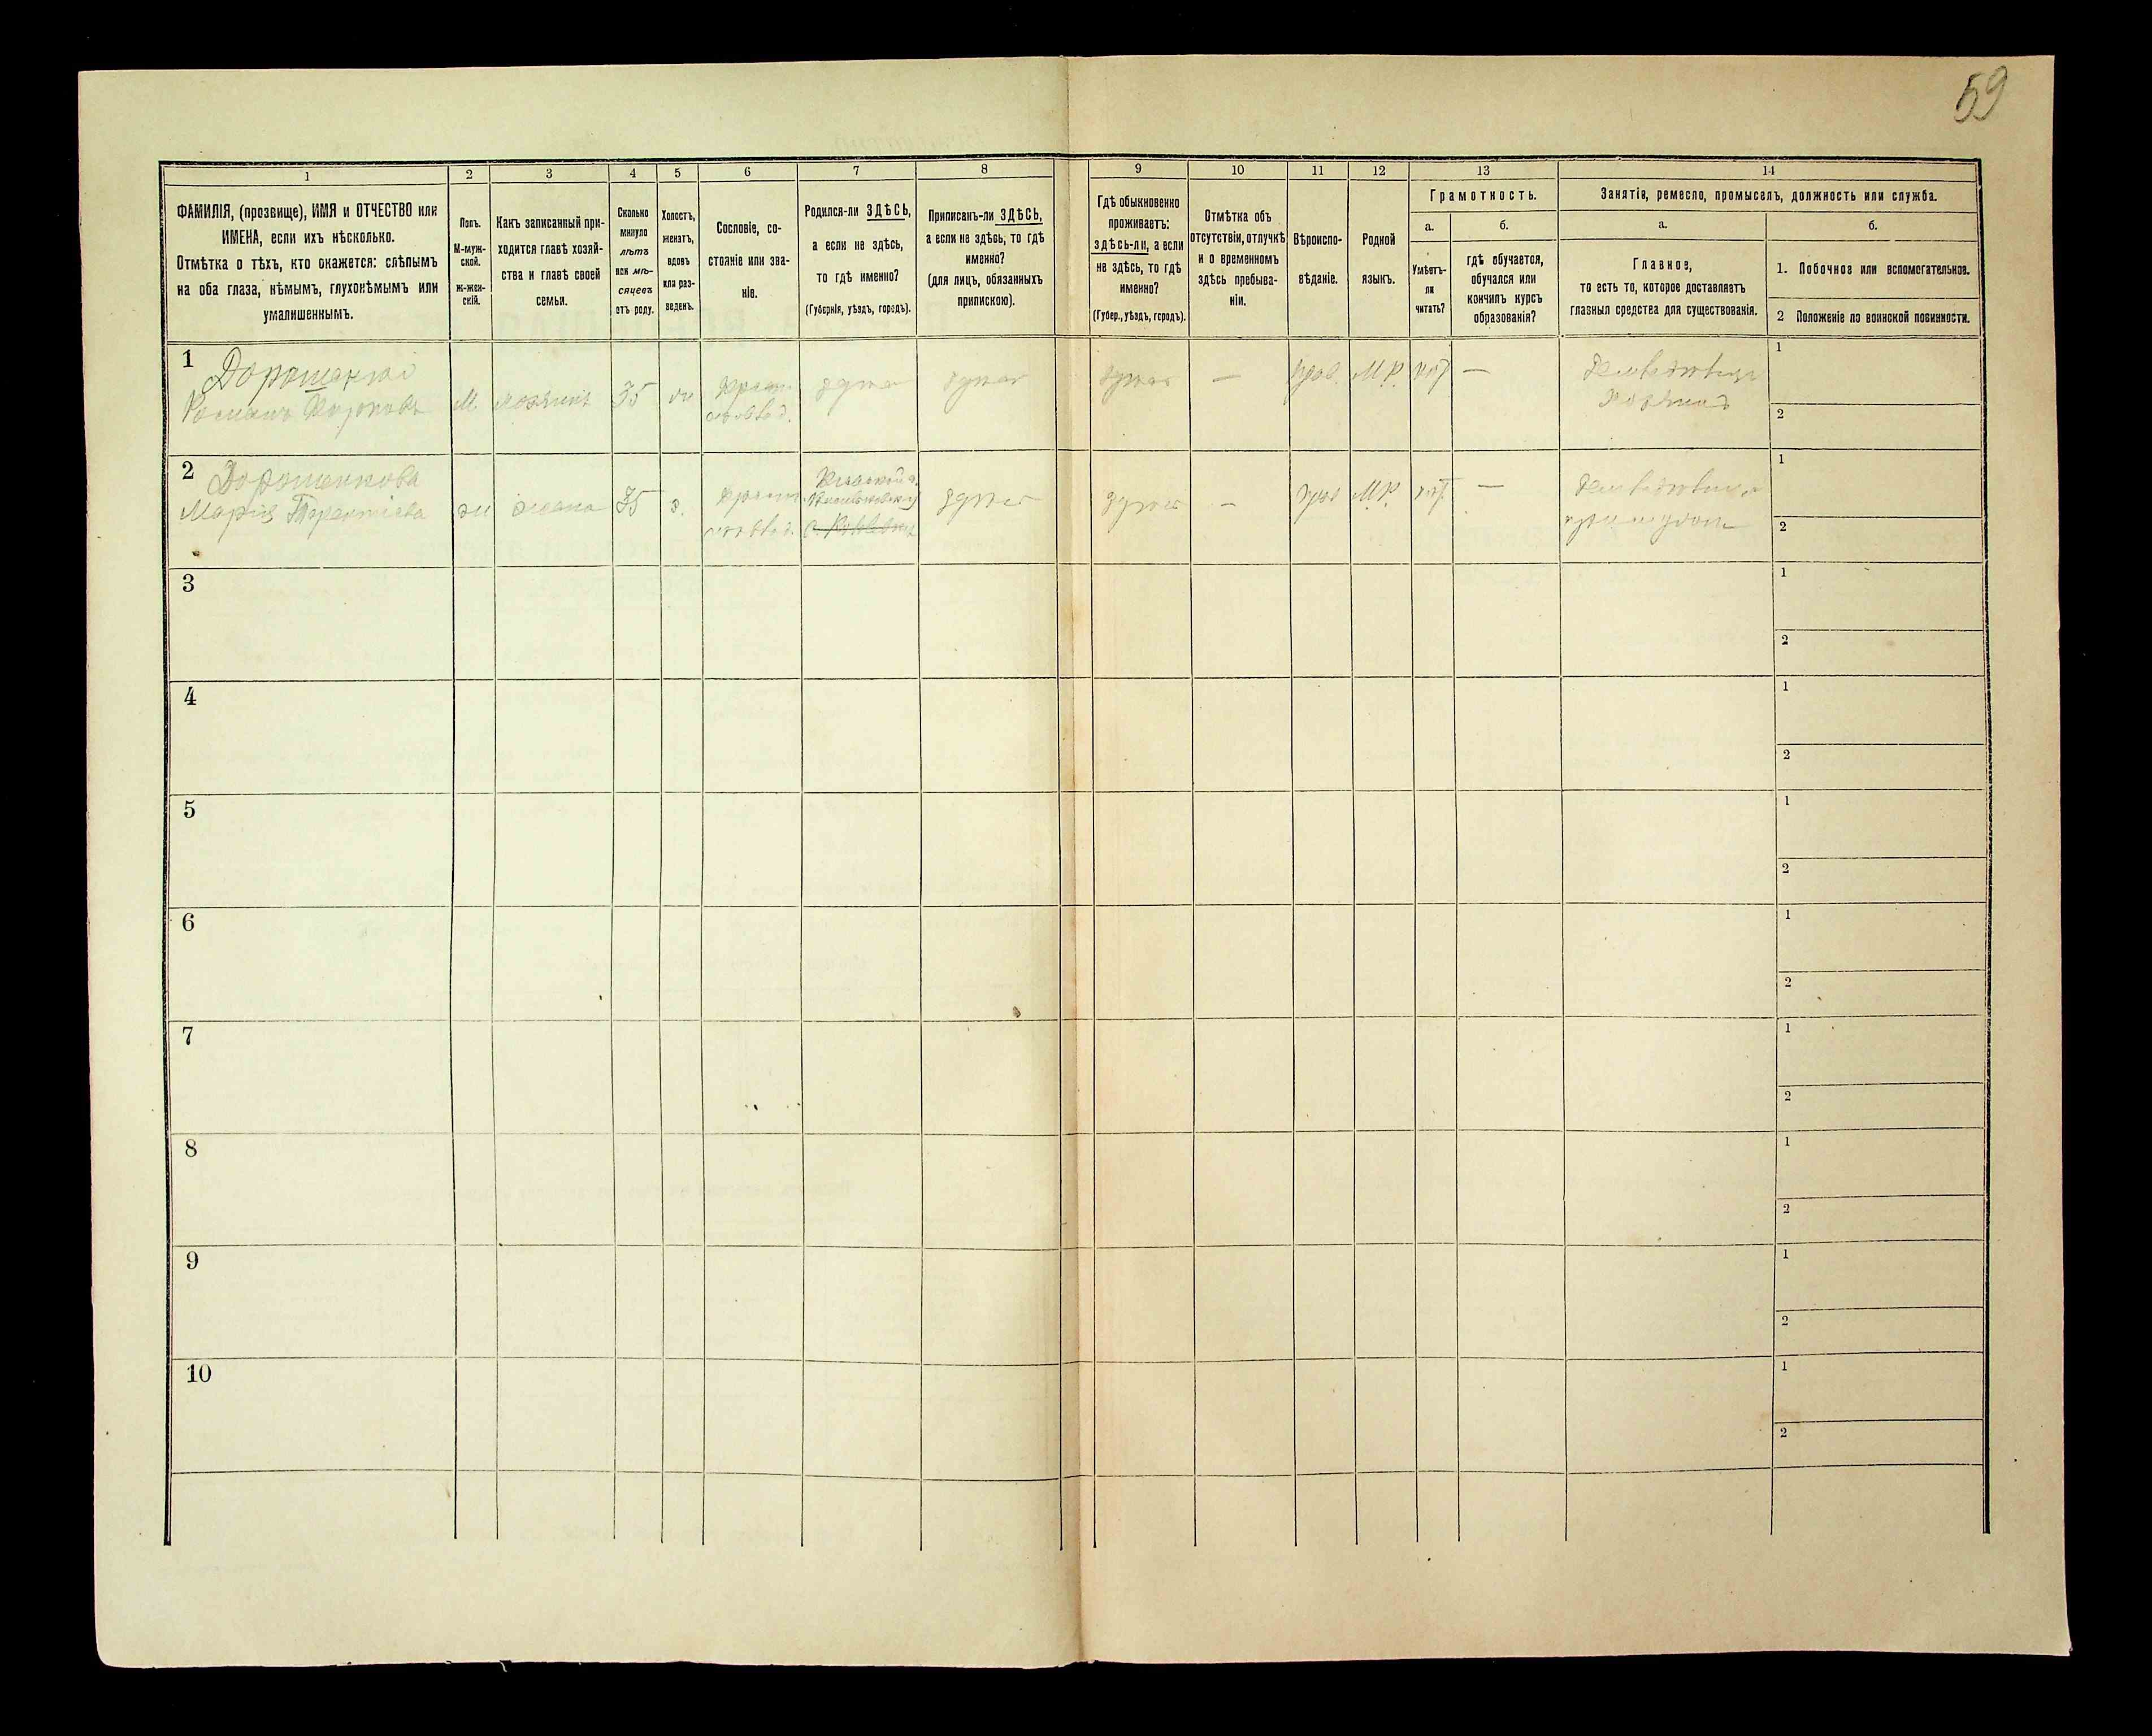 59
1
2
3
4
5
6
7
8
9
10
11
12
13
14
ФАМИЛІЯ, (прозвище), ИМЯ и ОТЧЕСТВО или
ИМЕНА, если ихъ нѣсколько.
Отмѣтка о тѣхъ, кто окажется: слѣпымъ
на оба глаза, нѣмымъ, глухонѣмымъ или
умалишеннымъ.
Полъ.
М-муж-
ской.
ж-жен-
скій.
Какъ записанный при-
ходится главѣ хозяй-
ства и главѣ своей
семьи.
Сколько
минуло
лѣтъ
или мѣ-
сяцевъ
отъ роду.
Холостъ,
женатъ,
вдовъ
или раз-
веденъ.
Сословіе, со-
стояніе или зва-
ніе.
Родился-ли ЗДѢСЬ,
а если не здѣсь,
то гдѣ именно?
(Губернія, уѣздъ, городъ).
Приписанъ-ли ЗДѢСЬ,
а если не здѣсь, то гдѣ
именно?
(для лицъ, обязанныхъ
припискою).
Гдѣ обыкновенно
проживаетъ:
здѣсь-ли, а если
не здѣсь, то гдѣ
именно?
(Губер., уѣздъ, городъ).
Отмѣтка объ
отсутствіи, отлучкѣ
и о временномъ
здѣсь пребыва-
ніи.
Вѣроиспо-
вѣданіе.
Родной
языкъ.
Грамотность.
а.
Умѣетъ-
ли
читать?
б.
гдѣ обучается,
обучался или
кончилъ курсъ
образованія?
Занятія, ремесло, промыселъ, должность или служба.
а.
Главное,
то есть то, которое доставляетъ
главныя средства для существованія.
б.
1. Побочное или вспомогательное.
2 Положеніе по воинской повинности.
1
Романъ
М
хозяинъ
35
здѣсь
здѣсь
здѣсь
—
М.р.
—
хозяинъ
1
2
2 Дорошенкова
Марія
ж
жена
35
з.
здѣсь
здѣсь
—
М.р.
—
1
2
3
1
2
4
1
2
5
1
2
6
1
2
7
1
2
8
1
2
9
1
2
10
1
2